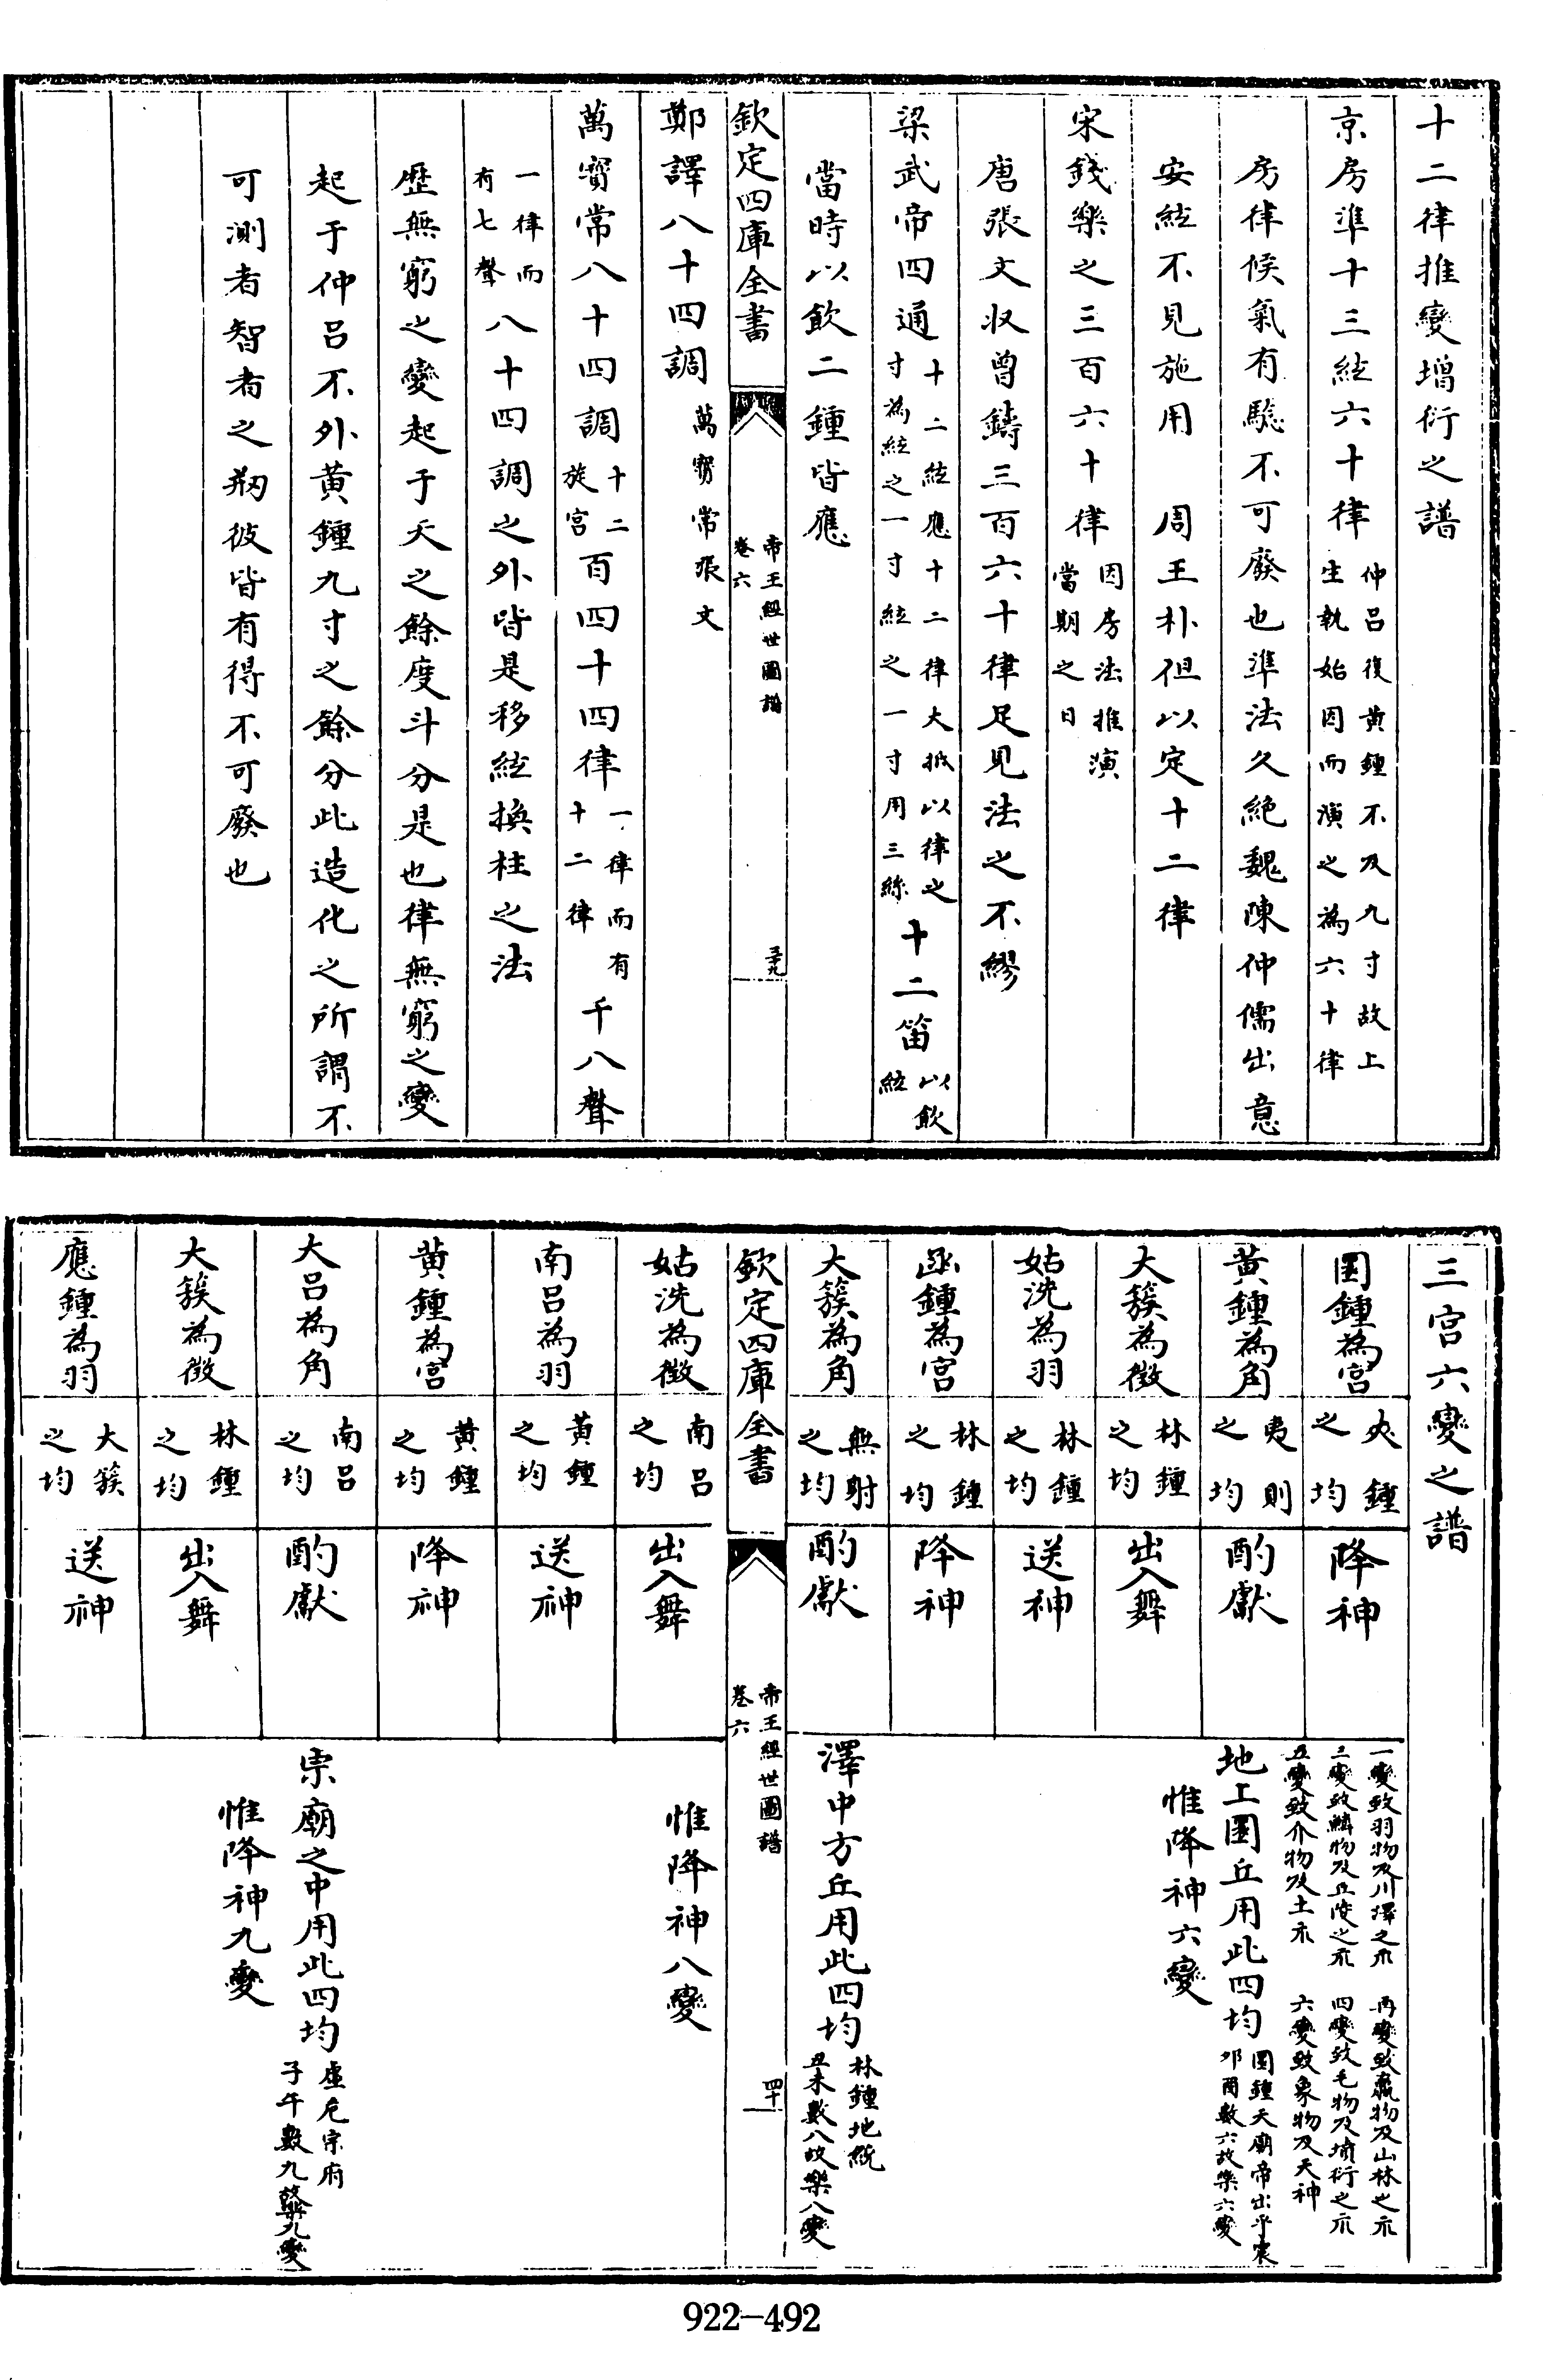 十二律推變增衍之譜
京房準十三絃六十律仲呂復黄鍾不及九寸故上
生執始因而演之為六十律
房律候氣有驗不可廢也準法久絶魏陳仲儒出意
安絃不見施用　周王朴但以定十二律
宋錢樂之三百六十律因房法推演
當期之日
唐張文收曾鑄三百六十律足見法之不繆
梁武帝四通十二絃應十二律大抵以律之
寸為絃之一寸絃之一寸用三絲十二笛以飲
絃
當時以飲二鍾皆應
欽定四庫全書
帝王經世圖譜
卷六
三十九
鄭譯八十四調萬寶常張文
萬寶常八十四調十二
旋宫百四十四律一律而有
十二律千八聲
一律而
有七聲八十四調之外皆是移絃換柱之法
歴無窮之變起于天之餘度斗分是也律無窮之變
起于仲呂不外黄鍾九寸之餘分此造化之所謂不
可測者智者之剏彼皆有得不可廢也
三宫六變之譜
圜鍾為宫
夾鍾
之均
降神
黄鍾為角
夷則
之均
酌獻
大簇為徴
林鍾
之均
出入舞
姑洗為羽
林鍾
之均
送神
一變致羽物及川澤之示　再變致臝物及山林之示
三變致鱗物及丘陵之示　四變致毛物及墳衍之示
五變致介物及土示　六變致象物及天神
地上圜丘用此四均圜鍾天廟帝出乎震
卯酉數六故樂六變
惟降神六變
函鍾為宫
林鍾
之均
降神
大簇為角
無射
之均
酌獻
澤中方丘用此四均林鍾地統
丑未數八故樂八變
欽定四庫全書
帝王經世圖譜
卷六
四十
姑洗為徴
南呂
之均
出入舞
南呂為羽
黄鍾
之均
送神
惟降神八變
黄鍾為宫
黄鍾
之均
降神
大呂為角
南呂
之均
酌獻
大簇為徴
林鍾
之均
出入舞
應鍾為羽
大簇
之均
送神
宗廟之中用此四均虚危宗府
子午數九故樂九變
惟降神九變
922-492